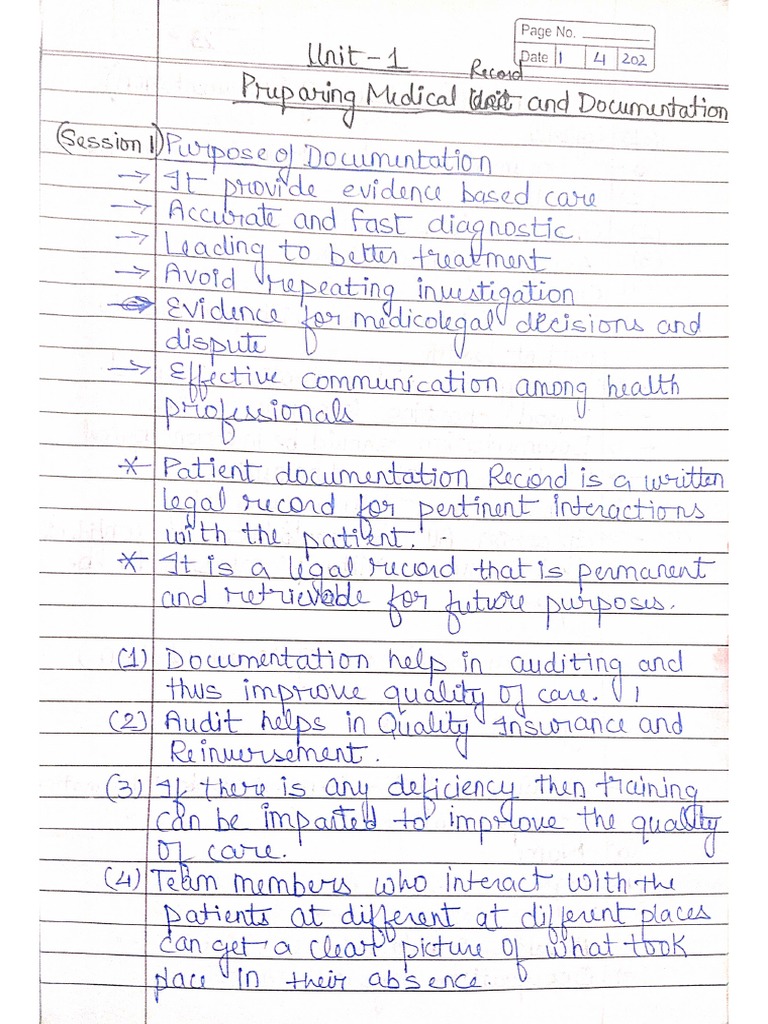 Page No.
Unit - 1
Date 1 4 202
Record
Preparing Medical Unit and Documentation
(Session 1) Purpose of Documentation
→ It provide evidence based care
→ Accurate and fast diagnostic.
→ Leading to better treatment
→ Avoid repeating investigation
→ Evidence for medicolegal decisions and
dispute
→ Effective communication among health
professionals
* Patient documentation Record is a written
legal record for pertinent interactions
with the patient.
* It is a legal record that is permanent
and retrievable for future purposes.
(1) Documentation help in auditing and
thus improve quality of care.
(2) Audit helps in Quality Insurance and
Reinuersement.
(3) If there is any deficiency then training
can be imparted to improve the quality
of care.
(4) Team members who interact with the
patients at different at different places
can get a clear picture of what took
place in their absence.